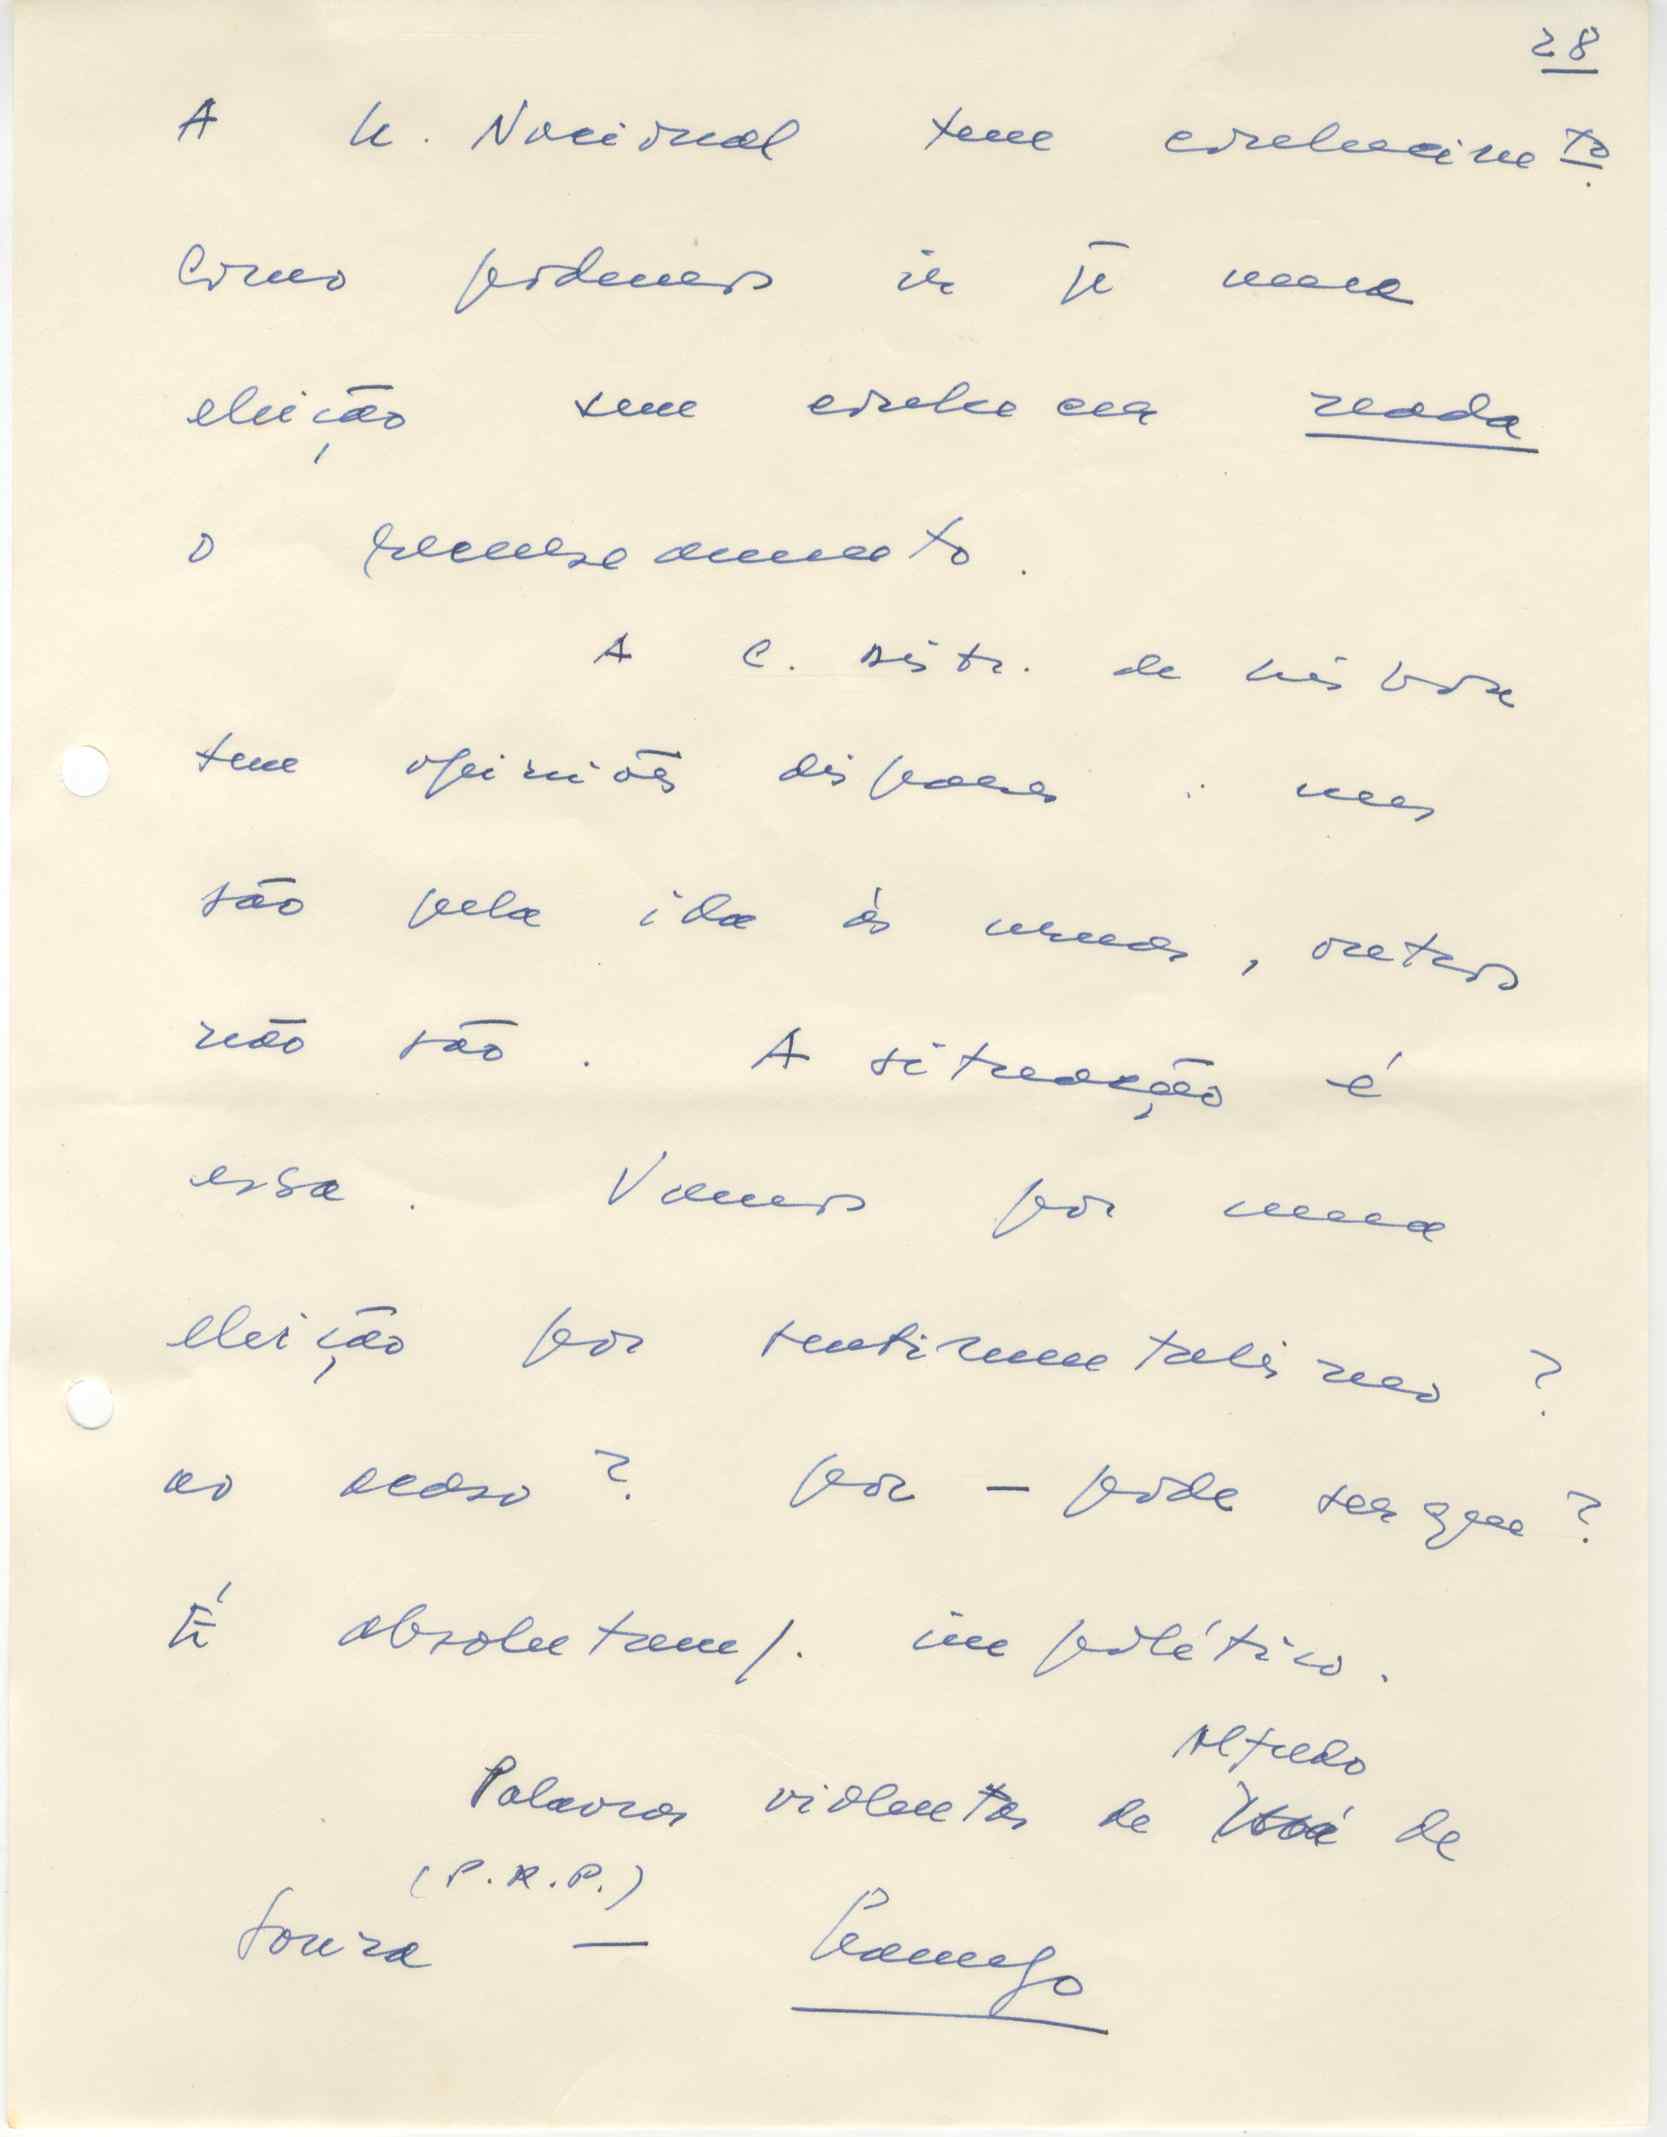 28
A U. Nacional tem conhecim to.
Como podemos ir p uma
eleição sem conhecer nada
o recenseamento.
A C. Distr. de Lisboa
tem opiniões dispares: uns
são pela ida às urnas, outros
não são. A situação é
essa. Vamos por uma
eleição por sentimentalismo?
ao acaso? por — pode ser que?
É absolutam/. impolítico.
Alfredo
Palavras violentas de José de
(P.R.P.)
Souza —